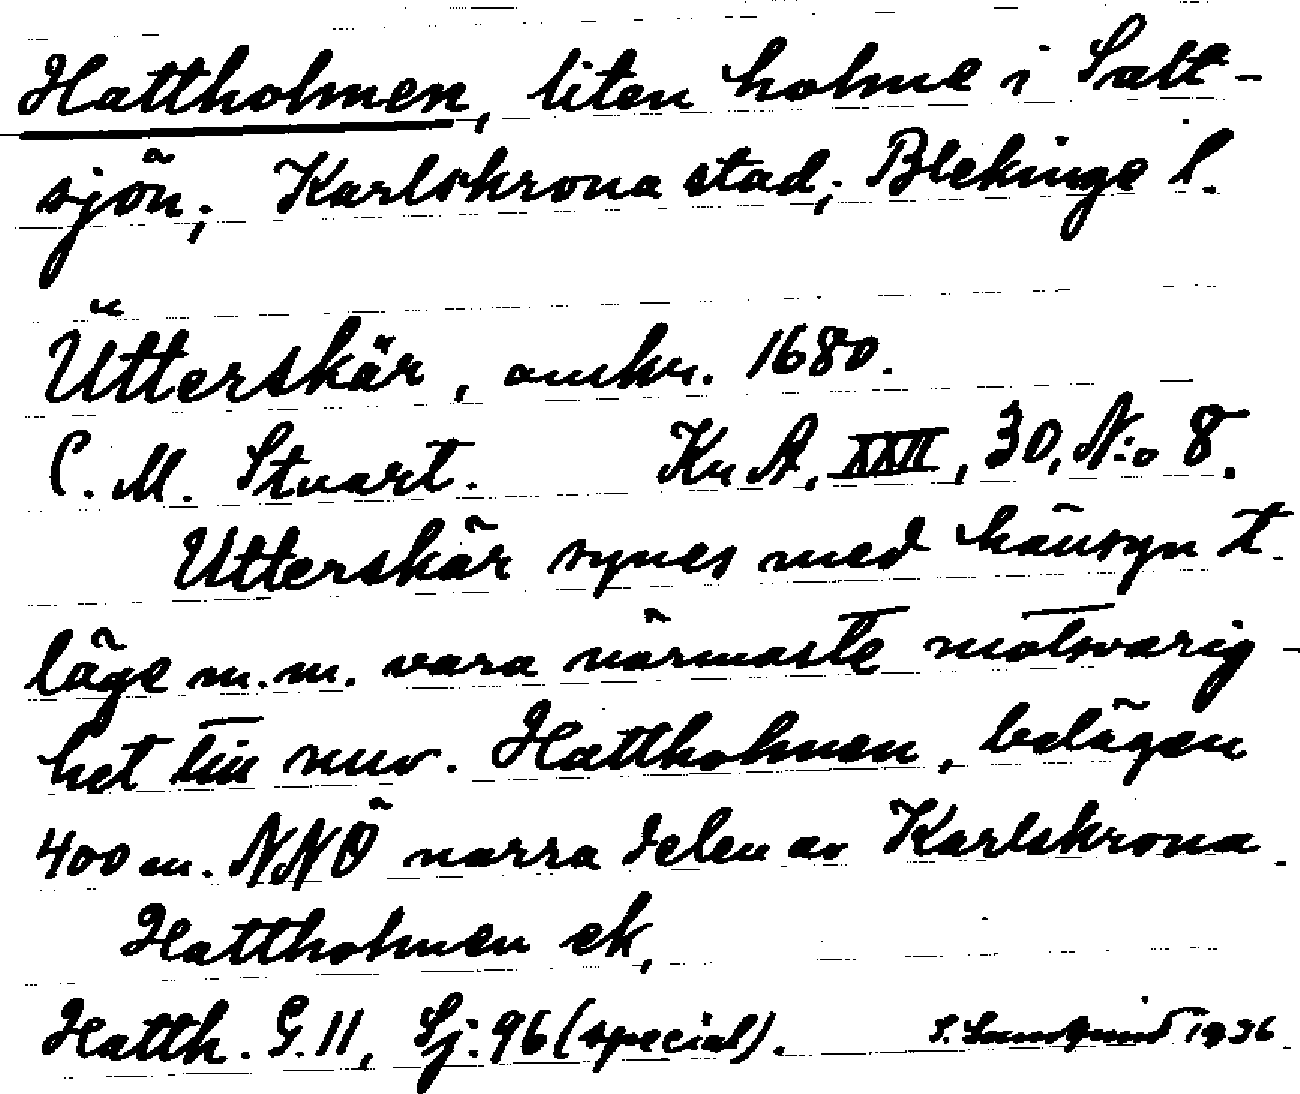 Hattholmen, liten holme i Salt-
sjön; Karlskrona stad; Blekinge l.
Utterskär, omkr. 1680.
C. M. Stuart. Kr A, XXII, 30, N:o 8.
Utterskär synes med hänsyn t.
läge m.m. vara närmaste motsvarig-
het till nuv. Hattholmen, belägen
400 m. NNÖ norra delen av Karlskrona.
Hattholmen ek,
Hatth. G. 11, Sj. 96 (special). 1936